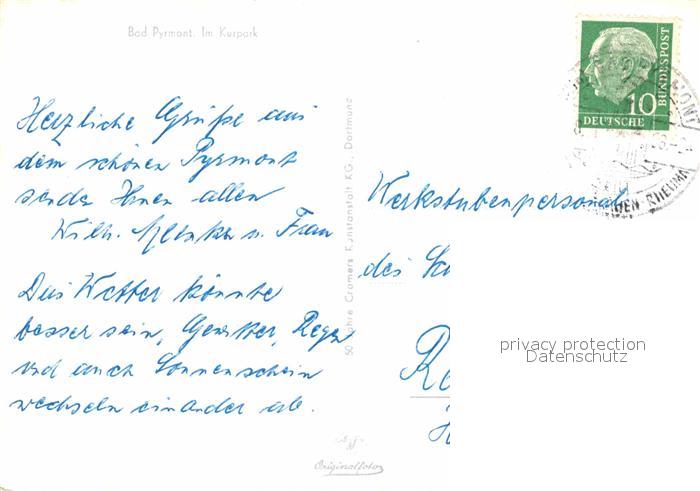 Bad Pyrmont. Im Kurpark
Herzliche Grüße aus
dem schönen Pyrmont
sendet Ihnen allen
Wilh. u. Frau
Das Wetter könnte
besser sein, Gewitter, Regen
und auch Sonnenschein
wechseln einander ab.
50 Jahre Cramers Kunstanstalt KG., Dortmund
Originalfoto
10
DEUTSCHE
BUNDESPOST
RHEUMA
Werkstubenpersonal
des
privacy protection
Datenschutz